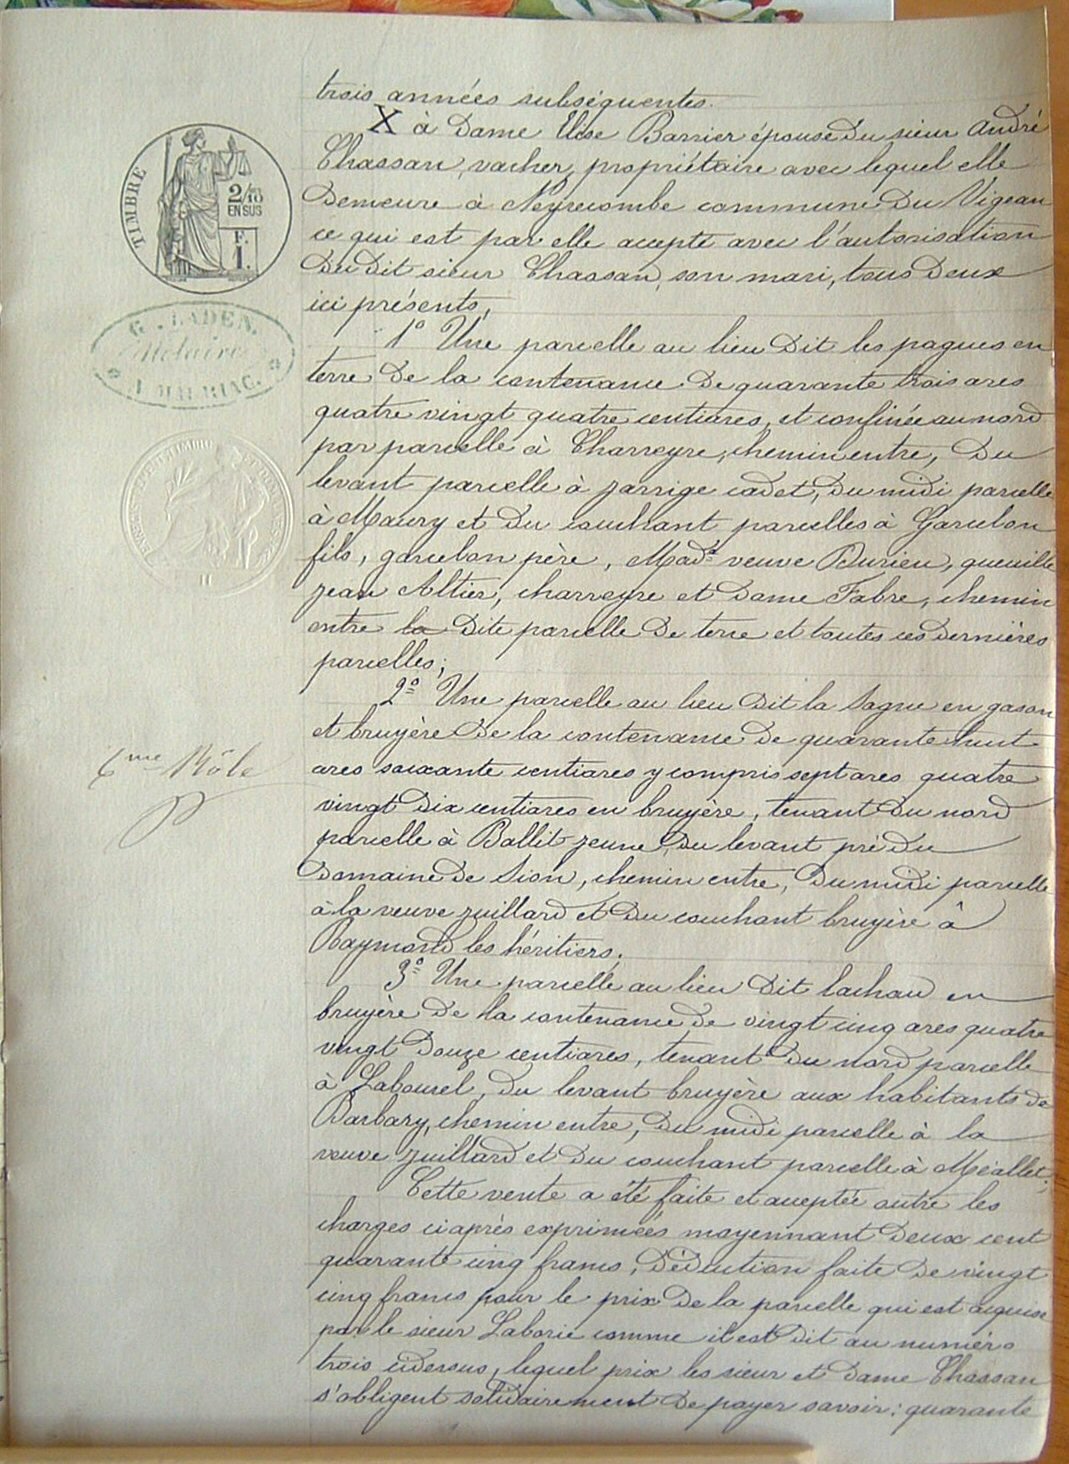 trois années subséquentes.
X à Dame Elise Barrier épouse Du sieur André
Chassan, vacher, propriétaire avec lequel elle
Demeure à Neyrecombe commune Du Vigean
ce qui est par elle accepté avec l'autorisation
Du Dit sieur Chassan, son mari, tous Deux
ici présents,
1º Une parcelle au lieu Dit les pagues en
terre De la contenance De quarante trois ares
quatre vingt quatre centiares, et confinée au nord
par parcelle à Charreyre, chemin entre, Du
levant parcelle à Jarrige cadet, Du midi parcelle
à Maury et Du couchant parcelles à Garcelon
fils, garcelon père, Made veuve Durieu, queuille
Jean Altier, charreyre et Dame Fabre, chemin
entre la Dite parcelle De terre et toutes ces Dernières
parcelles;
2º Une parcelle au lieu Dit la Sagne en gason
et bruyère De la contenance De quarante huit
ares soixante centiares y compris sept ares quatre
vingt Dix centiares en bruyère, tenant Du nord
parcelle à Ballit jeune, Du levant pré Du
Domaine De Sion, chemin entre, Du midi parcelle
à la veuve juillard et Du couchant bruyère à
Raymond les héritiers;
3º Une parcelle au lieu Dit lachau en
bruyère De la contenance De vingt cinq ares quatre
vingt Douze centiares, tenant Du nord parcelle
à Labourel, Du levant bruyère aux habitants De
Barbary, chemin entre, Du midi parcelle à la
veuve Juillard et Du couchant parcelle à Méallet;
Cette vente a été faite et acceptée outre les
charges ci après exprimées moyennant Deux cent
quarante cinq francs, Déduction faite De vingt
cinq francs pour le prix De la parcelle qui est acquise
par le sieur Laborie comme il est Dit au numéro
trois ci dessus, lequel prix les sieur et Dame Chassan
s'obligent solidairement De payer savoir: quarante
TIMBRE
2/10
EN SUS
F.
1.
G. LADEN.
Notaire
A MAURIAC.
6me Rôle